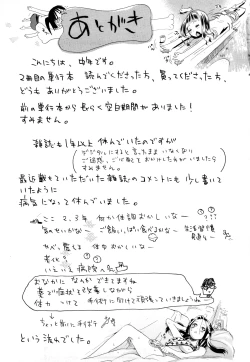 あとがき
こんにちは、中年です。
2冊目の単行本 読んでくださった方、買ってくださった方、
どうもありがとうございました。
前の単行本から長らく空白期間がありました!
すみません。
雑誌も1年以上休んでいたのですが
デジタルにすると言ったまま いなくなり
ご迷惑、心配をおかけした方がいましたら
すみません。
最近載せていただいた雑誌のコメントにも少し書いて
いたように
病気になって休んでいました。
ここ2、3年 体調おかしいなー
気のせいかな
ご飯いっぱい食べよかな
生活習慣
見直し
やっぱ悪くて 体調おかしいなー
いといて病院へ
おなかに なのかできてますね
薬で症状を改善しながら
体力つけて 手術に向けて頑張っていきましょう
という流れでした。